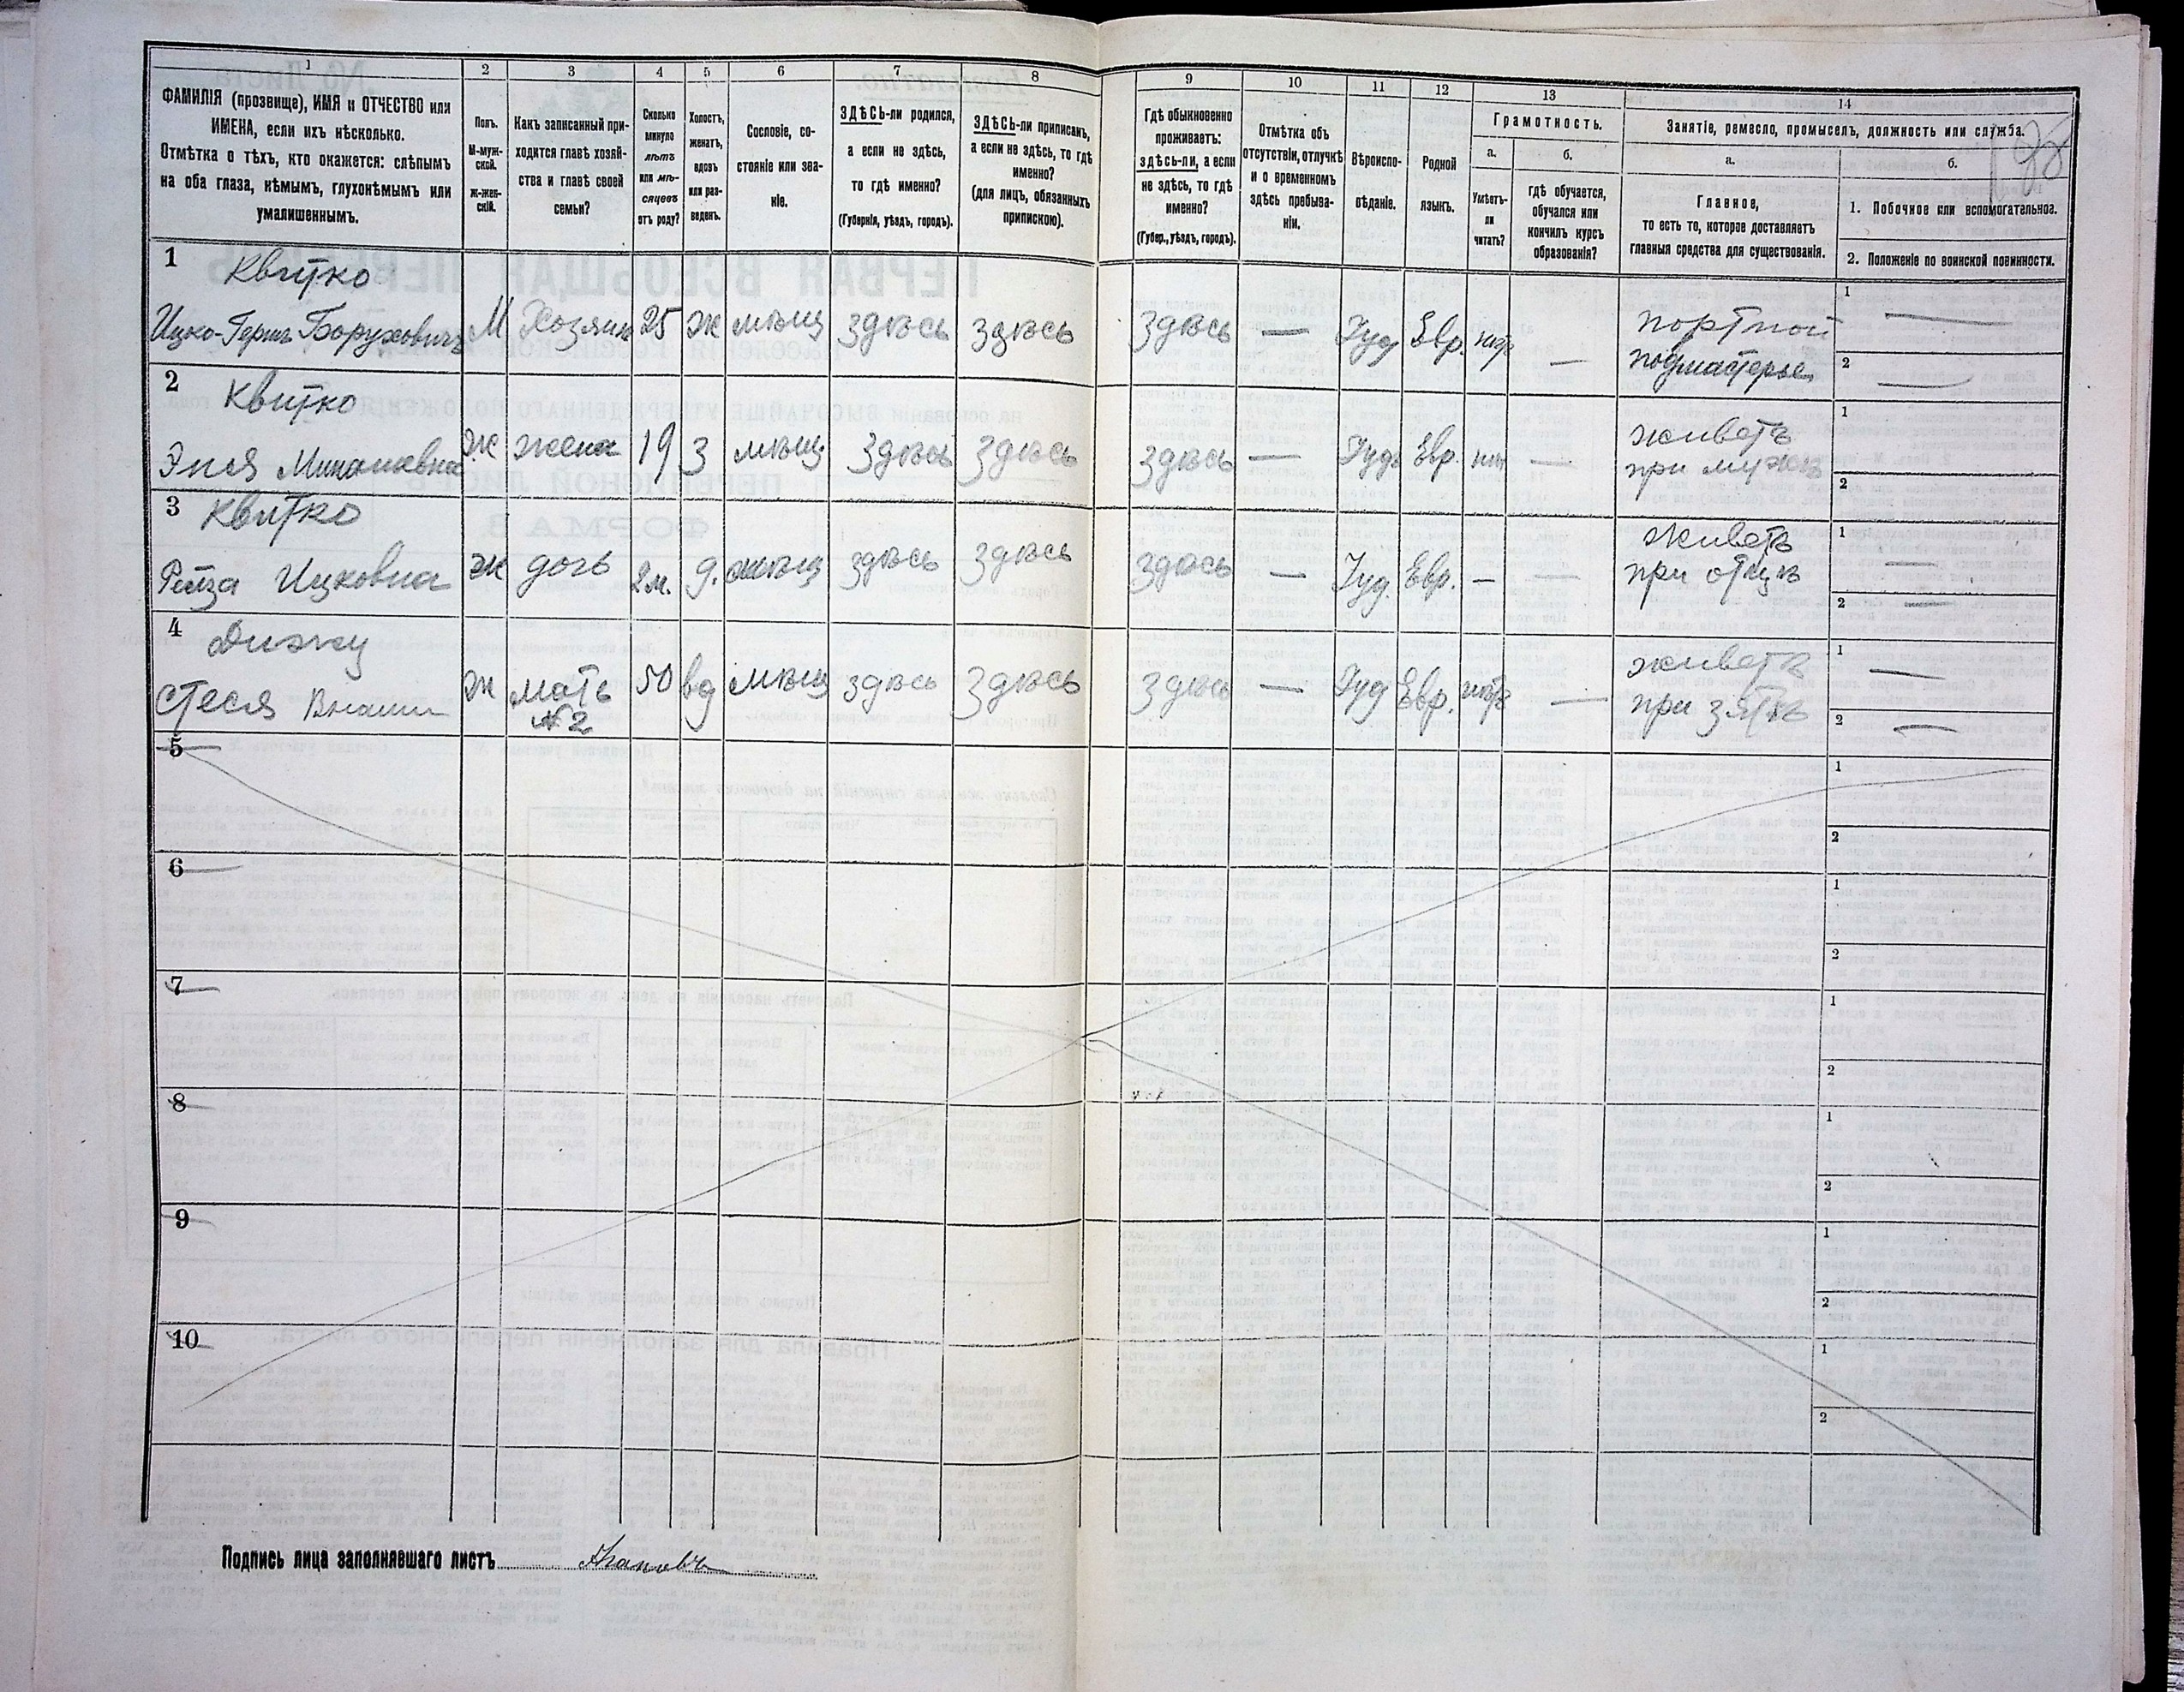 1 2 3 4 5 6 7 8 9 10 11 12 13 14
ФАМИЛІЯ (прозвище), ИМЯ и ОТЧЕСТВО или
ИМЕНА, если ихъ нѣсколько.
Отмѣтка о тѣхъ, кто окажется: слѣпымъ
на оба глаза, нѣмымъ, глухонѣмымъ или
умалишеннымъ.
Полъ.
М-муж-
ской.
Ж-жен-
скій.
Какъ записанный при-
ходится главѣ хозяй-
ства и главѣ своей
семьи?
Сколько
минуло
лѣтъ
или мѣ-
сяцевъ
отъ роду?
Холостъ,
женатъ,
вдовъ
или раз-
веденъ.
Сословіе, со-
стояніе или зва-
ніе.
ЗДѢСЬ-ли родился,
а если не здѣсь,
то гдѣ именно?
(Губернія, уѣздъ, городъ).
ЗДѢСЬ-ли приписанъ,
а если не здѣсь, то гдѣ
именно?
(для лицъ, обязанныхъ
припискою).
Гдѣ обыкновенно
проживаетъ:
здѣсь-ли, а если
не здѣсь, то гдѣ
именно?
(Губер., уѣздъ, городъ).
Отмѣтка объ
отсутствіи, отлучкѣ
и о временномъ
здѣсь пребыва-
ніи.
Вѣроиспо-
вѣданіе.
Родной
языкъ.
Грамотность.
а.
Умѣетъ-
ли
читать?
б.
гдѣ обучается,
обучался или
кончилъ курсъ
образованія?
Занятіе, ремесло, промыселъ, должность или служба.
а.
Главное,
то есть то, которое доставляетъ
главныя средства для существованія.
б.
1. Побочное или вспомогательное.
2. Положеніе по воинской повинности.
1 Квитко
Ицко-Герш Борухович М Хозяин 25 ж мѣщ здѣсь здѣсь здѣсь — Іуд Евр. —
портной
подмастерье
1 —
2 —
2 Квитко
Ж жена 19 з мѣщ. здѣсь здѣсь здѣсь — Іуд Евр. —
живетъ
при мужѣ
1
2
3 Квитко
Рейза Ицковна ж дочь 2 м. д. мѣщ здѣсь здѣсь здѣсь — Іуд. Евр. — —
живетъ
при отцѣ
1 —
2 —
4
Стеся ж мать 50 вд мѣщ здѣсь здѣсь здѣсь — Іуд Евр. —
№ 2
живетъ
при зятѣ
1 —
2 —
5 1
2
6 1
2
7 1
2
8 1
2
9 1
2
10 1
2
Подпись лица заполнявшаго листъ